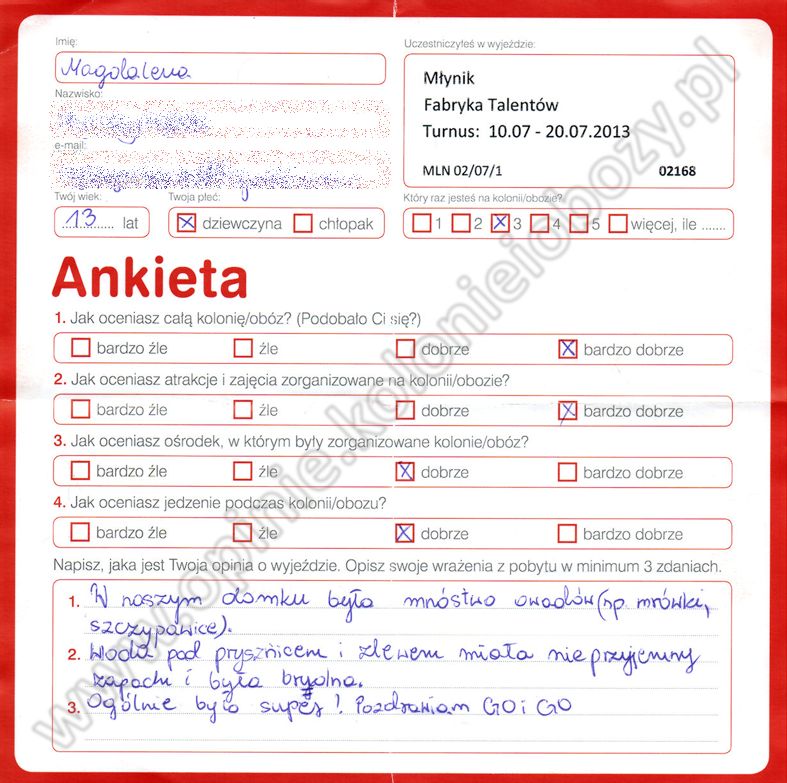 Imię:
Magdalena
Nazwisko:
e-mail:
Twój wiek:
13 lat
Twoja płeć:
dziewczyna chłopak
Uczestniczyłeś w wyjeździe:
Młynik
Fabryka Talentów
Turnus: 10.07 - 20.07.2013
MLN 02/07/1 02168
Który raz jesteś na kolonii/obozie?
1 2 3 4 5 więcej, ile .......
Ankieta
1. Jak oceniasz całą kolonię/obóz? (Podobało Ci się?)
bardzo źle źle dobrze bardzo dobrze
2. Jak oceniasz atrakcje i zajęcia zorganizowane na kolonii/obozie?
bardzo źle źle dobrze bardzo dobrze
3. Jak oceniasz ośrodek, w którym były zorganizowane kolonie/obóz?
bardzo źle źle dobrze bardzo dobrze
4. Jak oceniasz jedzenie podczas kolonii/obozu?
bardzo źle źle dobrze bardzo dobrze
Napisz, jaka jest Twoja opinia o wyjeździe. Opisz swoje wrażenia z pobytu w minimum 3 zdaniach.
1. W naszym domku było mnóstwo owadów (np. mrówki,
szczypawice).
2. Woda pod prysznicem i zlewem miała nie przyjemny
zapach i była brudna.
3. Ogólnie było super! Pozdrawiam GO i GO
www.opinie.kolonieiobozy.pl